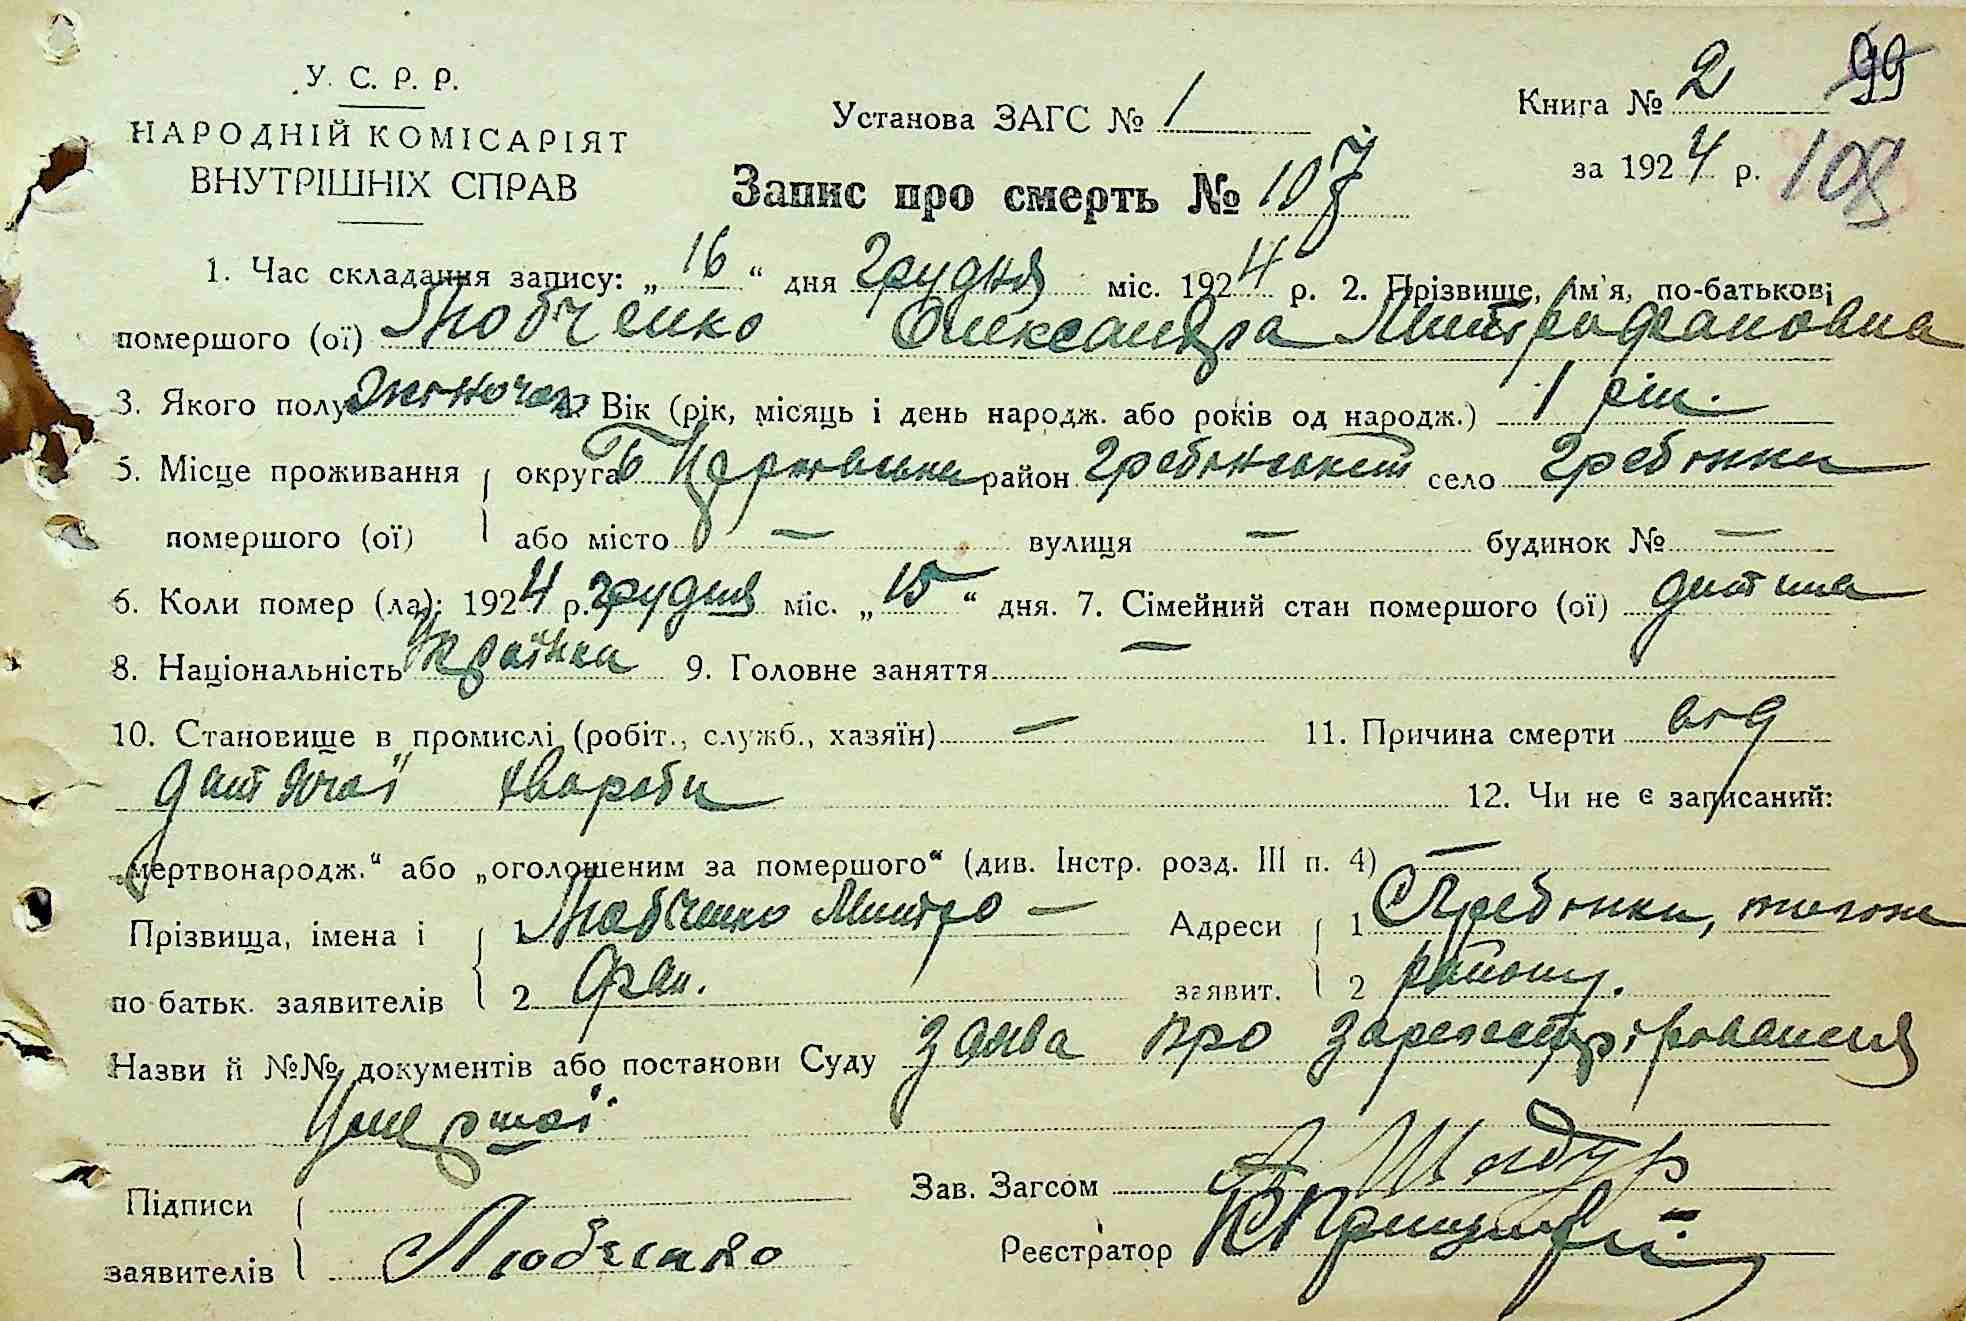 У. С. Р. Р.
НАРОДНІЙ КОМІСАРІЯТ
ВНУТРІШНІХ СПРАВ
Установа ЗАГС № 1
Книга № 2 99
за 1924 р. 108
Запис про смерть № 107
1. Час складання запису: „16“ дня Грудня міс. 1924 р. 2. Прізвище, ім'я, по-батькові
помершого (ої) Любченко Олександра Митрофановна
3. Якого полу жіночого Вік (рік, місяць і день народж. або років од народж.) 1 рік.
5. Місце проживання округа Б Церківська район Гребінський село Гребінки
помершого (ої) або місто — вулиця — будинок № —
6. Коли помер (ла): 1924 р. грудня міс. „15“ дня. 7. Сімейний стан помершого (ої) дитина
8. Національність Українка 9. Головне заняття —
10. Становище в промислі (робіт., служб., хазяїн) — 11. Причина смерти від
дитячої хвороби 12. Чи не є записаний:
„мертвонародж.“ або „оголошеним за помершого“ (див. Інстр. розд. III п. 4) —
Прізвища, імена і 1 Любченко Митро — Адреси 1 С Гребінки, того ж
по батьк. заявителів 2 фан. заявит. 2 району.
Назви й №№ документів або постанови Суду Заява про зареєстрірованния
Умершої
Підписи
заявителів Любченко
Зав. Загсом
Реєстратор